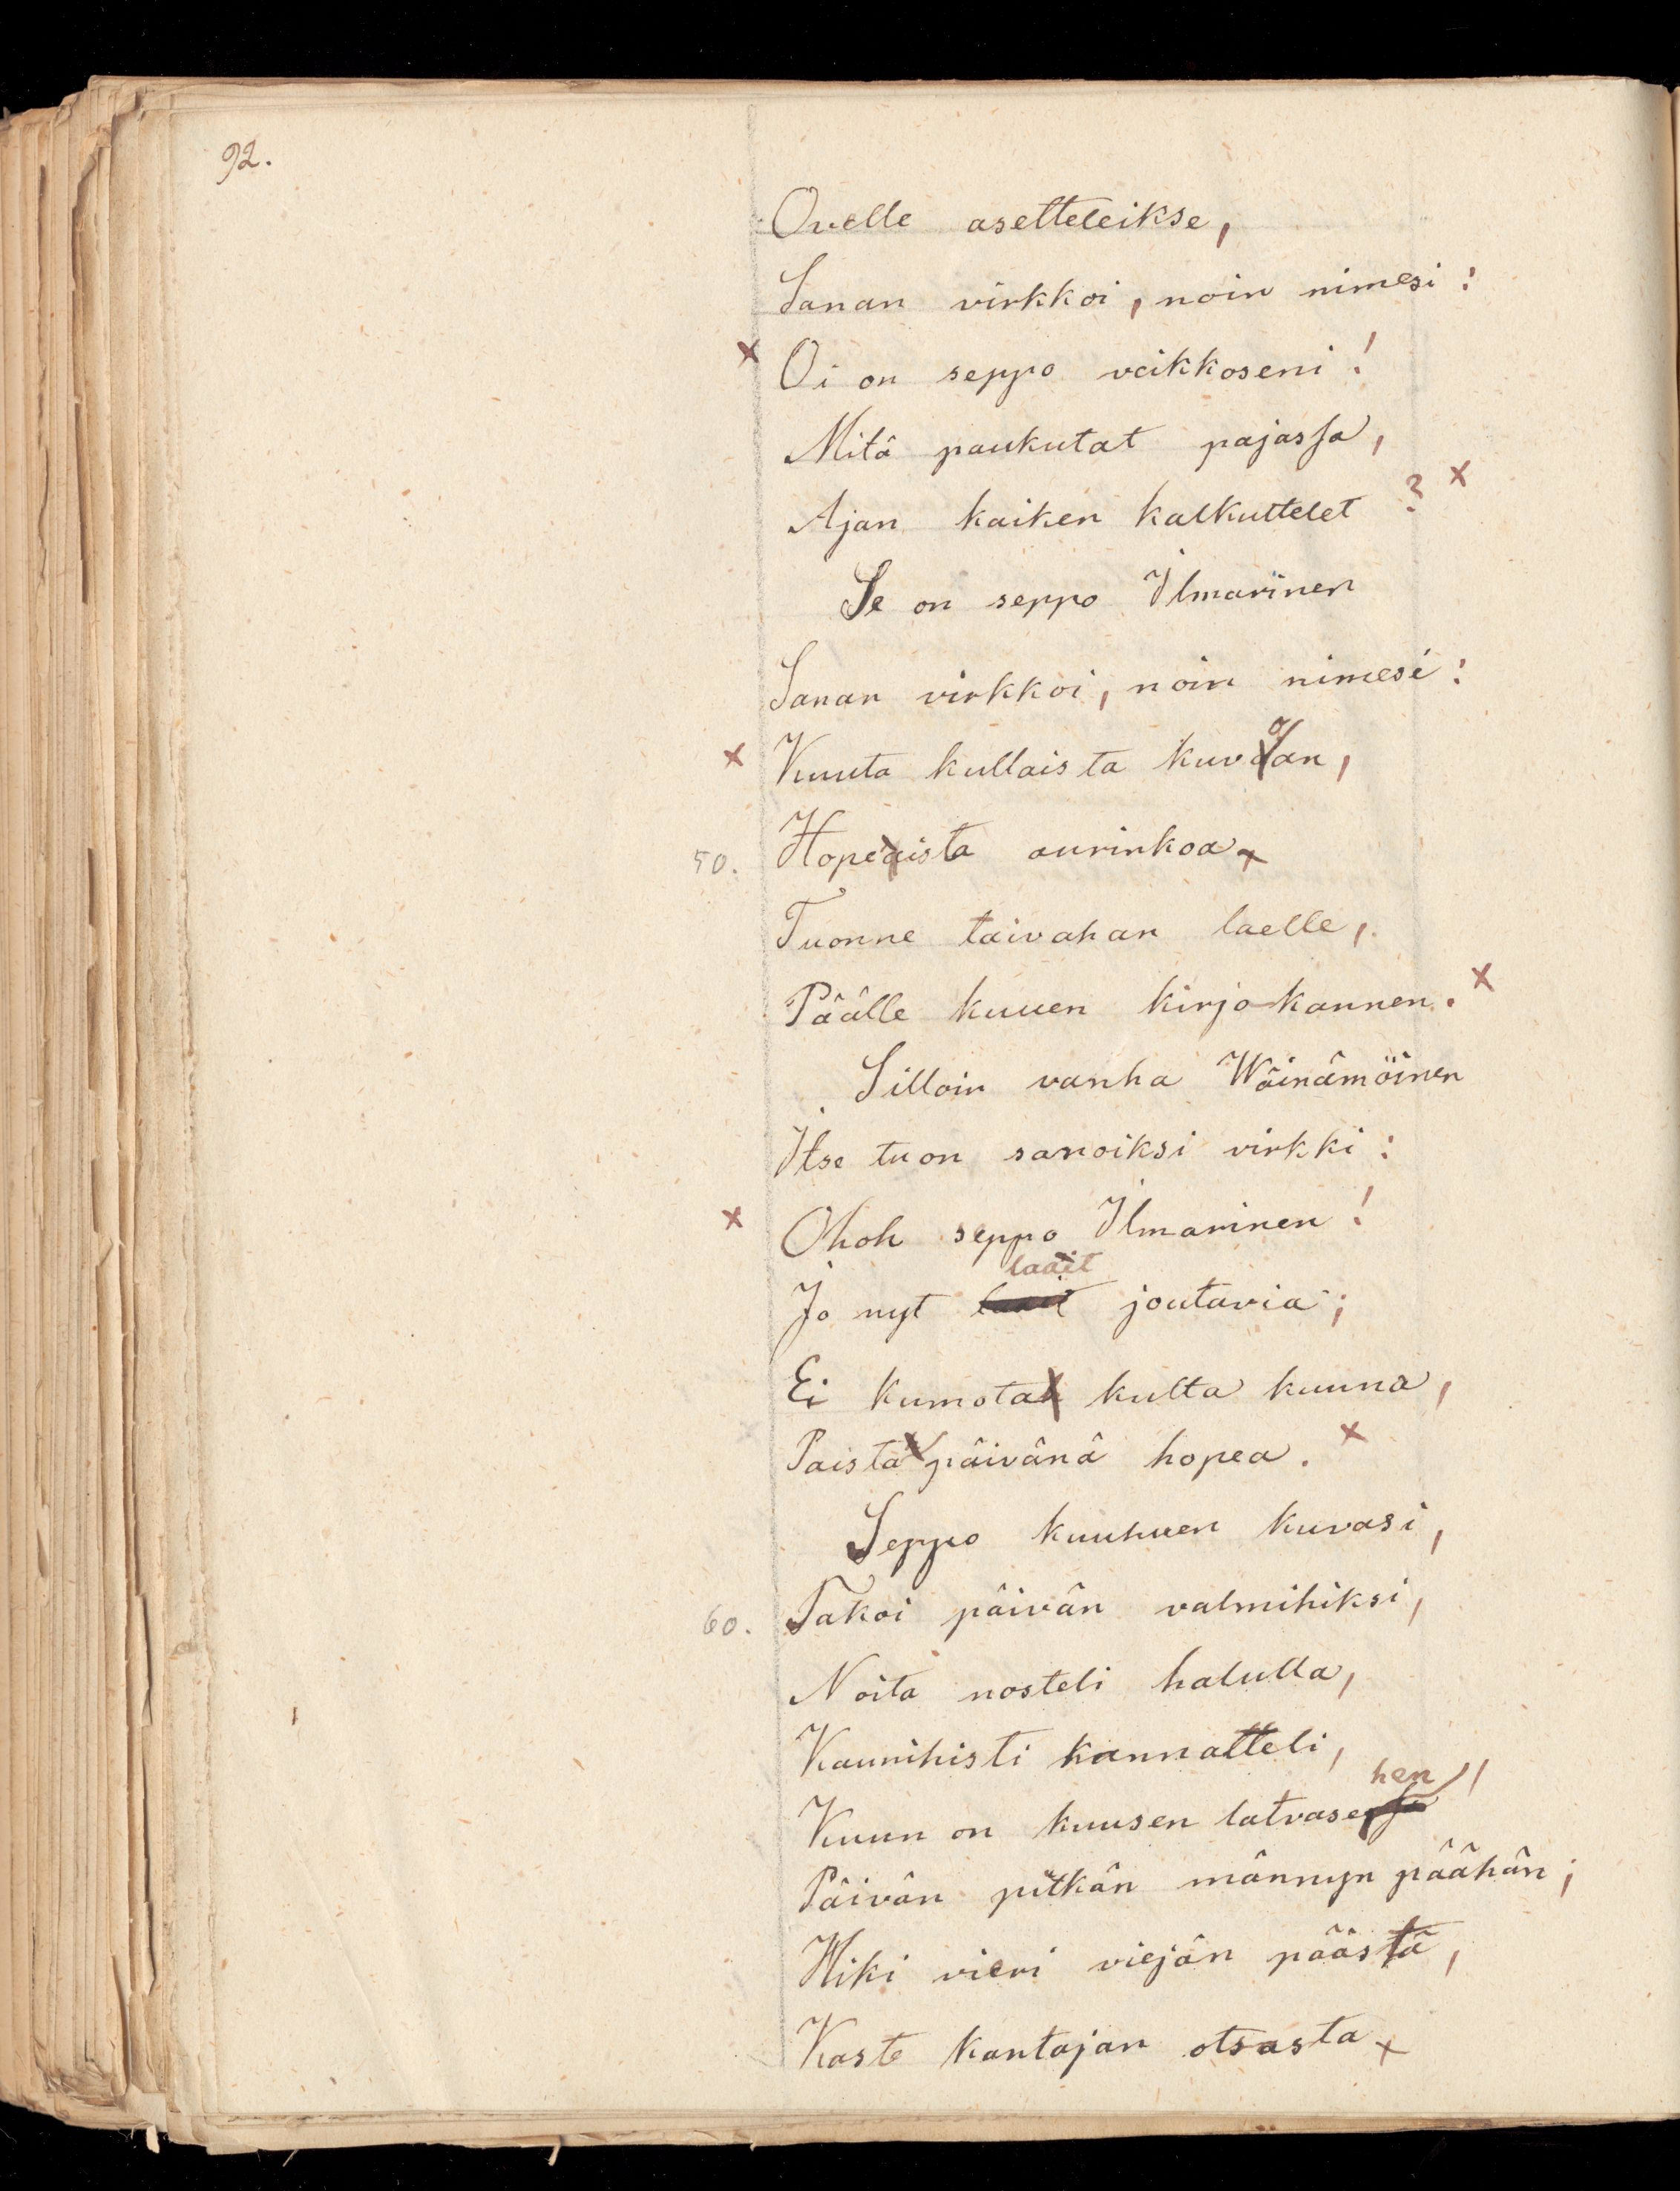 92.
Ovelle asetteleikse,
Sanan virkkoi, noin nimesi:
x Oi on seppo veikkoseni!
Mitä paukutat pajassa,
Ajan kaiken kalkuttelet? x
Se on seppo Ilmarinen
Sanan virkkoi, noin nimesi:
x Kuuta kullaista kuvoan,
50. Hopeista aurinkoa x
Tuonne taivahan laelle,
Päälle kuuen kirjokannen. x
Silloin vanha Wäinämöinen
Itse tuon sanoiksi virkki:
x Ohoh seppo Ilmarinen!
laait
Jo nyt joutavia;
Ei kumota kulta kuuna,
Paista päivänä hopea. x
Seppo kuuhuen kuvasi,
60. Takoi päivän valmihiksi,
Noita nosteli halulla,
Kaunihisti kannatteli,
hen,
Kuun on kuusen latvase
Päivän pitkän männyn päähän;
Hiki vieri viejän päästä,
Kaste kantajan otsasta x